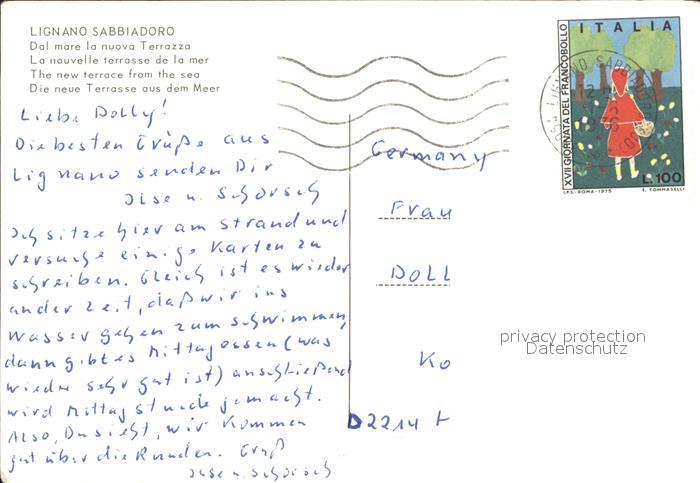 LIGNANO SABBIADORO
Dal mare la nuova Terrazza
La nouvelle terrasse de la mer
The new terrace from the sea
Die neue Terrasse aus dem Meer
Liebe Dolly!
Die besten Grüße aus
Lignano senden Dir
Ilse u. Schorsch
Ich sitze hier am Strand und
versuche einige Karten zu
schreiben. Gleich ist es wieder
an der Zeit, daß wir ins
Wasser gehen zum schwimmen,
dann gibt es Mittagessen (was
wieder sehr gut ist) anschließend
wird Mittagstunde gemacht.
Also, Du siehst, wir kommen
gut über die Runden. Gruß
Ilse u. Schorsch
ITALIA
XVII GIORNATA DEL FRANCOBOLLO
L.100
I.P.S.-ROMA-1975
E. TOMMASELLI
LIGNANO SABBIADORO
Germany
Frau
DOLL
Ko
D2214 H
privacy protection
Datenschutz